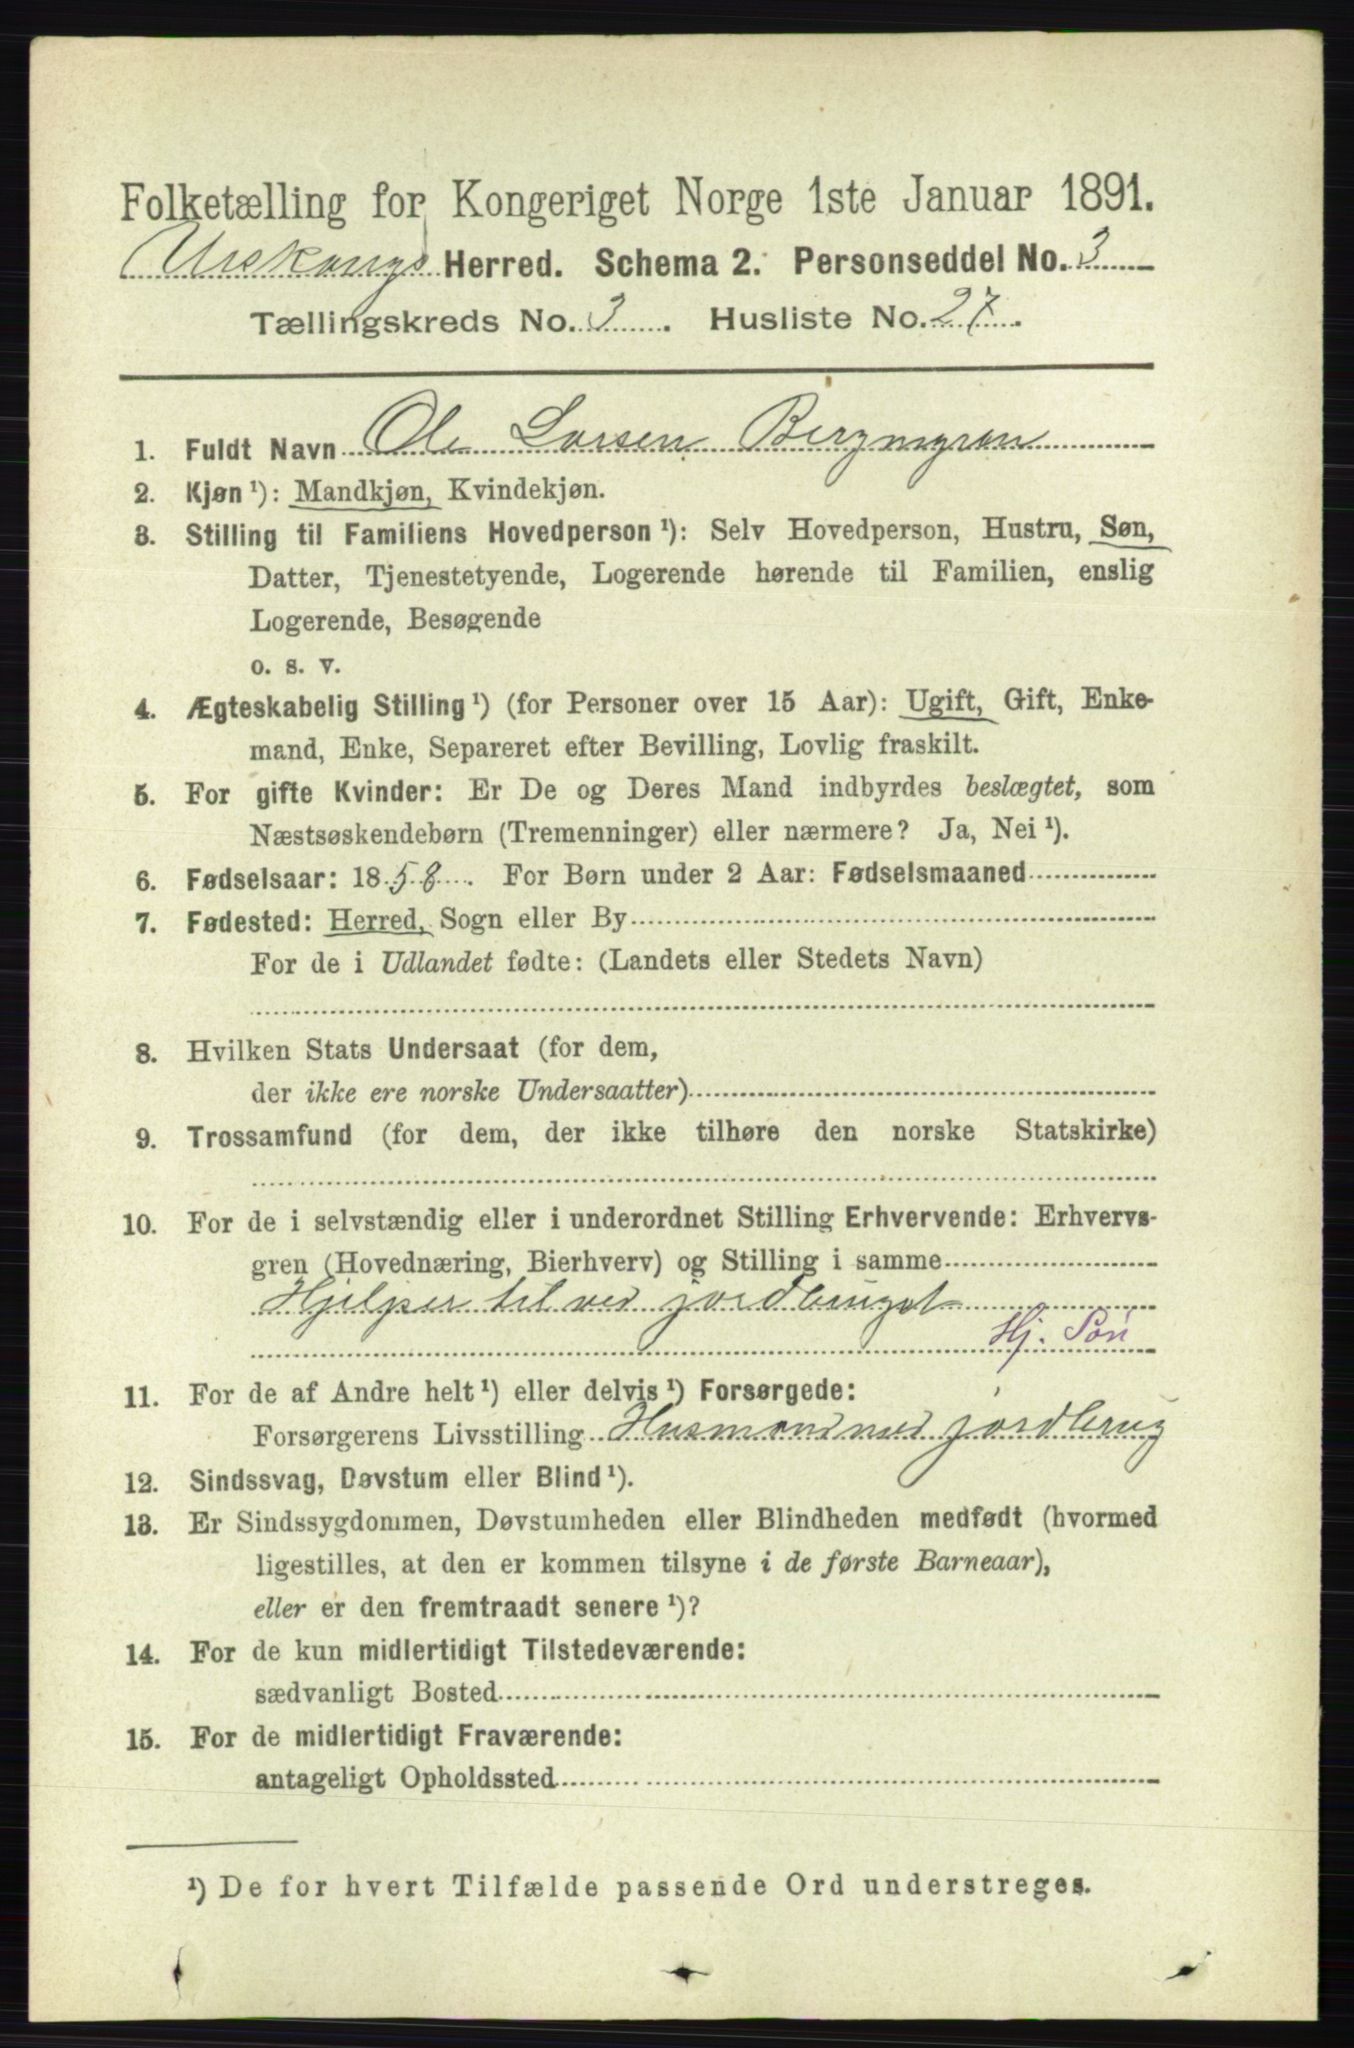 Folketælling for Kongeriget Norge 1ste Januar 1891.
Urskougs Herred. Schema 2. Personseddel No. 3
Tællingskreds No. 3. Husliste No. 27.
1. Fuldt Navn Ole Larsen
2. Kjøn ¹): Mandkjøn, Kvindekjøn.
3. Stilling til Familiens Hovedperson ¹): Selv Hovedperson, Hustru, Søn,
Datter, Tjenestetyende, Logerende hørende til Familien, enslig
Logerende, Besøgende
o. s. v.
4. Ægteskabelig Stilling ¹) (for Personer over 15 Aar): Ugift, Gift, Enke-
mand, Enke, Separeret efter Bevilling, Lovlig fraskilt.
5. For gifte Kvinder: Er De og Deres Mand indbyrdes beslægtet, som
Næstsøskendebørn (Tremenninger) eller nærmere? Ja, Nei ¹).
6. Fødselsaar: 1858. For Børn under 2 Aar: Fødselsmaaned
7. Fødested: Herred, Sogn eller By
For de i Udlandet fødte: (Landets eller Stedets Navn)
8. Hvilken Stats Undersaat (for dem,
der ikke ere norske Undersaatter)
9. Trossamfund (for dem, der ikke tilhøre den norske Statskirke)
10. For de i selvstændig eller i underordnet Stilling Erhvervende: Erhvervs-
gren (Hovednæring, Bierhverv) og Stilling i samme
Hjelper til ved jordbruget
Hj. Søn
11. For de af Andre helt ¹) eller delvis ¹) Forsørgede:
Forsørgerens Livsstilling Husmand med jordbrug
12. Sindssvag, Døvstum eller Blind ¹).
13. Er Sindssygdommen, Døvstumheden eller Blindheden medfødt (hvormed
ligestilles, at den er kommen tilsyne i de første Barneaar),
eller er den fremtraadt senere ¹)?
14. For de kun midlertidigt Tilstedeværende:
sædvanligt Bosted
15. For de midlertidigt Fraværende:
antageligt Opholdssted
¹) De for hvert Tilfælde passende Ord understreges.